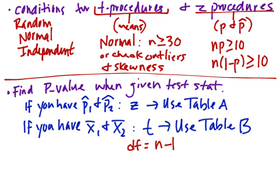 • Conditions for t-procedures & z procedures
Random (means) (p & p̂)
Normal Normal: n≥30 np≥10
Independent or check outliers & skewness n(1-p)≥10
• Find P-value when given test stat.
If you have p̂₁ & p̂₂: z → Use Table A
If you have x̄₁ & x̄₂: t → Use Table B
df = n-1